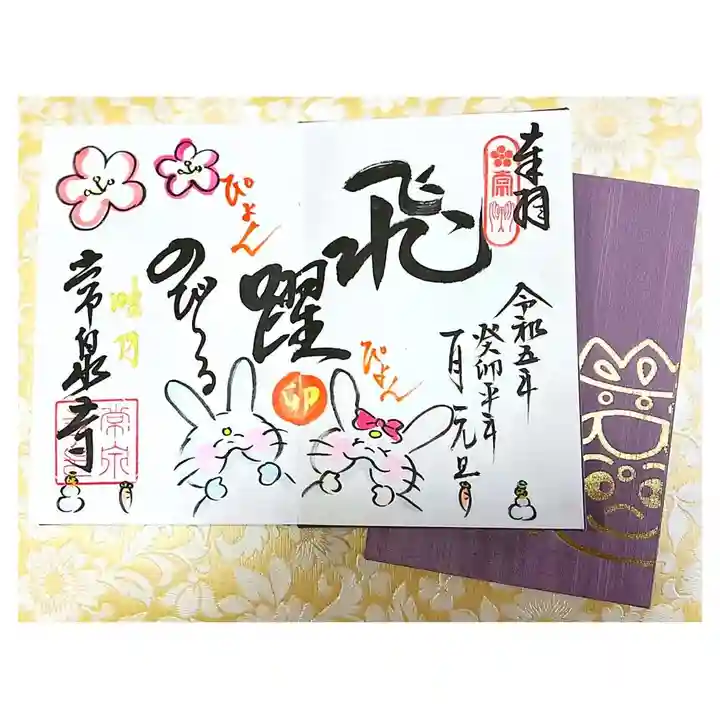 奉拝
令和五年
癸卯年
一月元旦
飛躍
ぴょん
ぴょん
卯
のびる
常泉寺